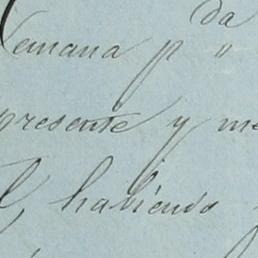 Semana p da "
presente y me
habiendo